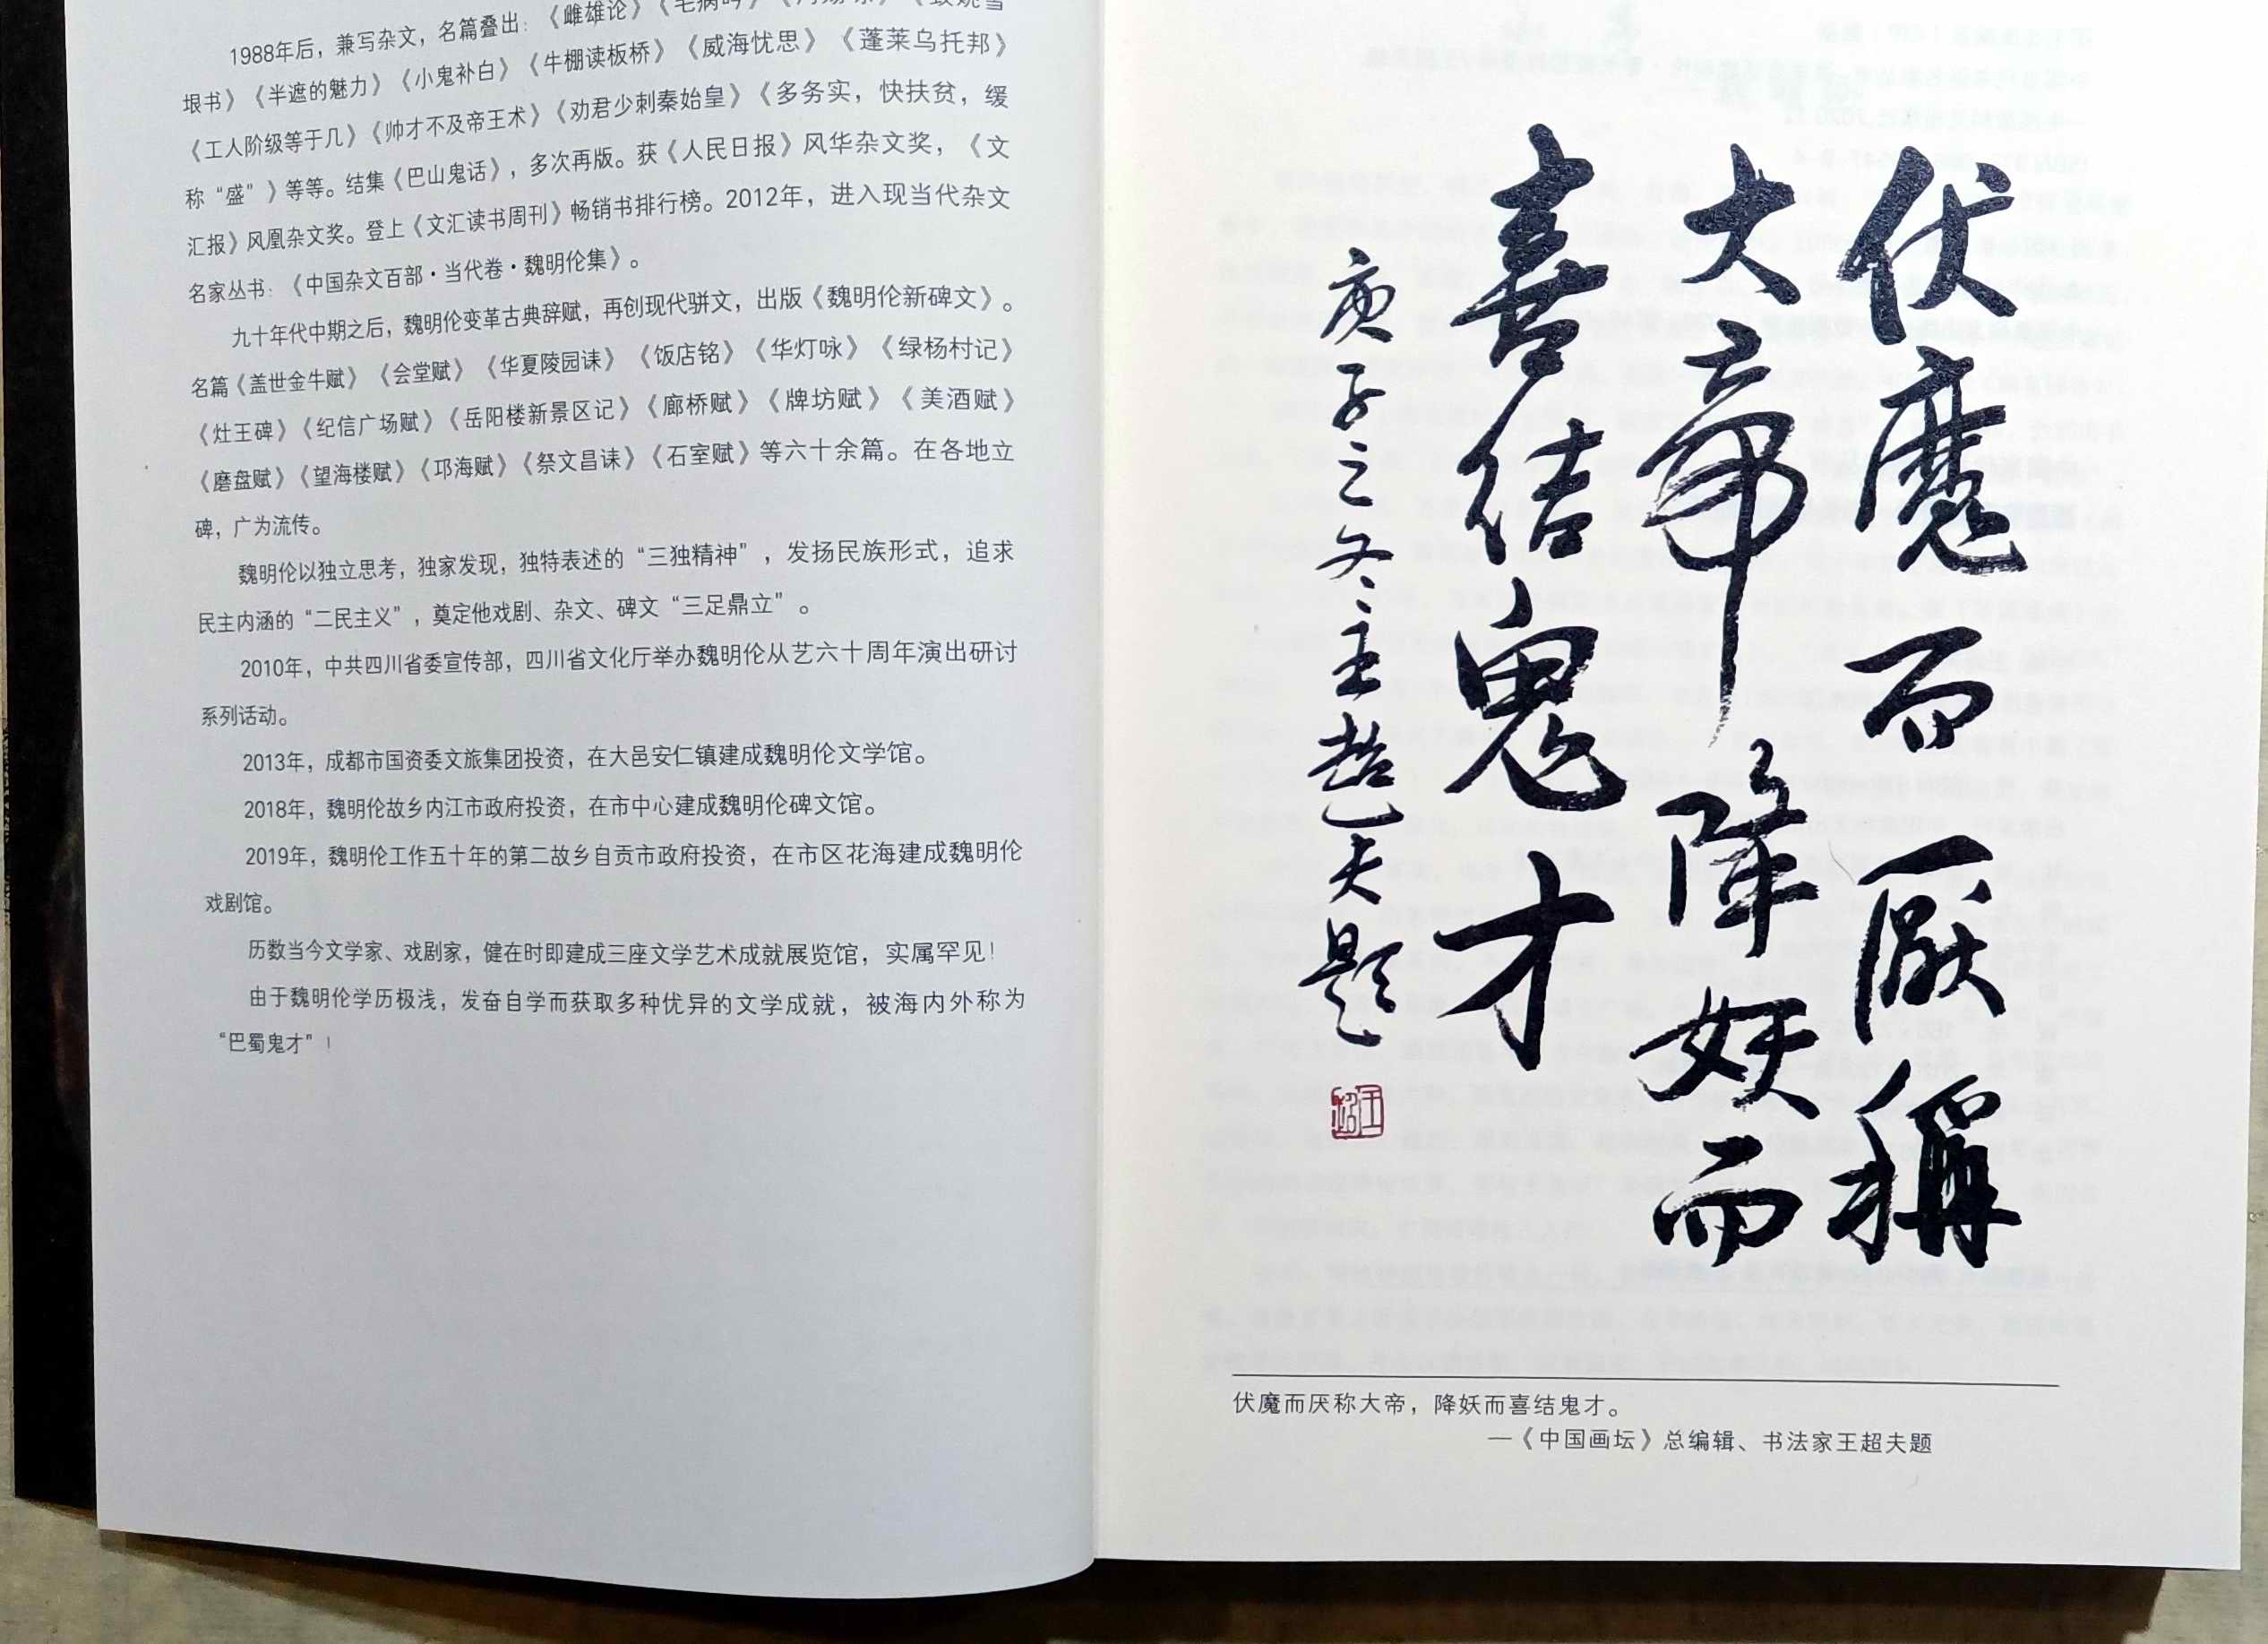 1988年后，兼写杂文，名篇叠出：《雌雄论》《毛病吟》
垠书》《半遮的魅力》《小鬼补白》《牛棚读板桥》《威海忧思》《蓬莱乌托邦》
《工人阶级等于几》《帅才不及帝王术》《劝君少刺秦始皇》《多务实，快扶贫，缓
称“盛”》等等。结集《巴山鬼话》，多次再版。获《人民日报》风华杂文奖，《文
汇报》风凰杂文奖。登上《文汇读书周刊》畅销书排行榜。2012年，进入现当代杂文
名家丛书：《中国杂文百部·当代卷·魏明伦集》。
九十年代中期之后，魏明伦变革古典辞赋，再创现代骈文，出版《魏明伦新碑文》。
名篇《盖世金牛赋》《会堂赋》《华夏陵园诔》《饭店铭》《华灯咏》《绿杨村记》
《灶王碑》《纪信广场赋》《岳阳楼新景区记》《廊桥赋》《牌坊赋》《美酒赋》
《磨盘赋》《望海楼赋》《邛海赋》《祭文昌诔》《石室赋》等六十余篇。在各地立
碑，广为流传。
魏明伦以独立思考，独家发现，独特表述的“三独精神”，发扬民族形式，追求
民主内涵的“二民主义”，奠定他戏剧、杂文、碑文“三足鼎立”。
2010年，中共四川省委宣传部，四川省文化厅举办魏明伦从艺六十周年演出研讨
系列话动。
2013年，成都市国资委文旅集团投资，在大邑安仁镇建成魏明伦文学馆。
2018年，魏明伦故乡内江市政府投资，在市中心建成魏明伦碑文馆。
2019年，魏明伦工作五十年的第二故乡自贡市政府投资，在市区花海建成魏明伦
戏剧馆。
历数当今文学家、戏剧家，健在时即建成三座文学艺术成就展览馆，实属罕见！
由于魏明伦学历极浅，发奋自学而获取多种优异的文学成就，被海内外称为
“巴蜀鬼才”！
伏魔而厭稱
大帝降妖而
喜结鬼才
庚子之冬王超夫题
伏魔而厌称大帝，降妖而喜结鬼才。
—《中国画坛》总编辑、书法家王超夫题